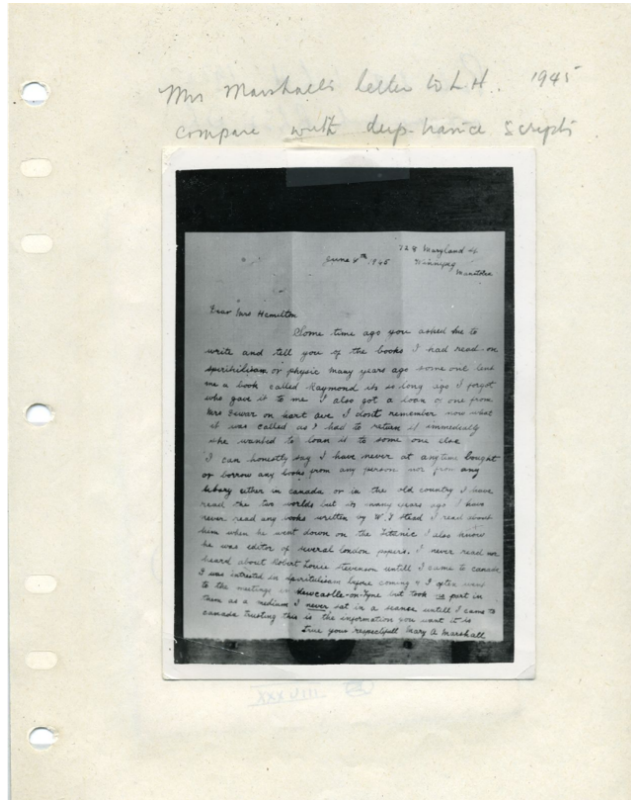 Mrs Marshall's letter to L.H. 1945
compare with deep-trance scripts
728 Maryland St
June 4th 1945 Winnipeg
Manitoba
Dear Mrs Hamilton
Some time ago you asked me to
write and tell you of the books I had read on
spirihilism or physic many years ago some one lend
me a book called Raymond its so long ago I forgot
who gave it to me I also got a loan of one from
Mrs on hart ave I dont remember now what
it was called as I had to return it
she wanted to loan it to some one else
I can honestly say I have never at anytime bought
or borrow any books from any person nor from any
libary either in canada or in the old country I have
read the two worlds but its many years ago I have
never read any books written by W.T Stead I read about
him when he went down on the Titanic I also know
he was editor of several london papers. I never read nor
heard about Robert Louis Stevenson untill I came to canada
I was intrested in spiritulism before coming & I often went
to the meetings in Newcastle-on-Tyne but took no part in
them as a medium I never sat in a seance untill I came to
canada trusting this is the information you want it is
true yours respectfull Mary A Marshall
XXXVIII